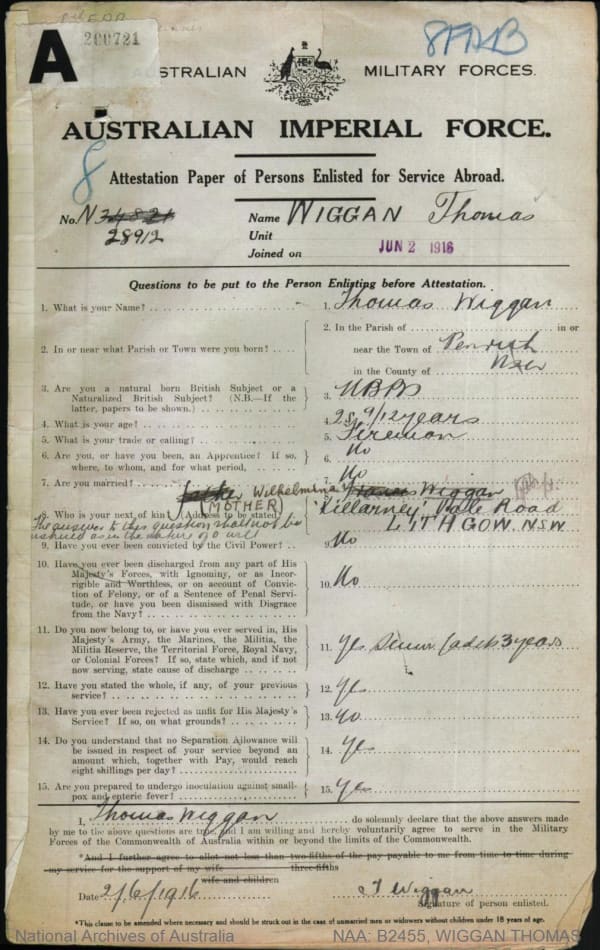 A
200721
8FAB
AUSTRALIAN MILITARY FORCES.
AUSTRALIAN IMPERIAL FORCE.
8
Attestation Paper of Persons Enlisted for Service Abroad.
No. N34821 Name WIGGAN Thomas
28912 Unit
Joined on JUN 2 1916
Questions to be put to the Person Enlisting before Attestation.
1. What is your Name? 1. Thomas Wiggan
2. In or near what Parish or Town were you born? 2. In the Parish of in or
near the Town of Penrith
in the County of NSW
3. Are you a natural born British Subject or a
Naturalized British Subject? (N.B.—If the
latter, papers to be shown.) 3. NBBS
4. What is your age? 4. 28 9/12 years
5. What is your trade or calling? 5. Fireman
6. Are you, or have you been, an Apprentice? If so,
where, to whom, and for what period, 6. No
7. Are you married? 7. No
father Wilhelmina Francis Wiggan
(MOTHER)
8. Who is your next of kin? (Address to be stated) "Killarney" Vale Road
LITHGOW. NSW
The answer to this question shall not be
construed as in the nature of a will
9. Have you ever been convicted by the Civil Power? 9. No
10. Have you ever been discharged from any part of His
Majesty's Forces, with Ignominy, or as Incor-
rigible and Worthless, or on account of Convic-
tion of Felony, or of a Sentence of Penal Servi-
tude, or have you been dismissed with Disgrace
from the Navy? 10. No
11. Do you now belong to, or have you ever served in, His
Majesty's Army, the Marines, the Militia, the
Militia Reserve, the Territorial Force, Royal Navy,
or Colonial Forces? If so, state which, and if not
now serving, state cause of discharge 11. Yes Senior Cadets 3 years
12. Have you stated the whole, if any, of your previous
service? 12. Yes
13. Have you ever been rejected as unfit for His Majesty's
Service? If so, on what grounds? 13. No
14. Do you understand that no Separation Allowance will
be issued in respect of your service beyond an
amount which, together with Pay, would reach
eight shillings per day? 14. Yes
15. Are you prepared to undergo inoculation against small-
pox and enteric fever? 15. Yes
I, Thomas Wiggan do solemnly declare that the above answers made
by me to the above questions are true, and I am willing and hereby voluntarily agree to serve in the Military
Forces of the Commonwealth of Australia within or beyond the limits of the Commonwealth.
*And I further agree to allot not less than two-fifths of the pay payable to me from time to time during
three-fifths
my service for the support of my wife
wife and children
Date 2/6/1916 T Wiggan
Signature of person enlisted.
*This clause to be amended where necessary and should be struck out in the case of unmarried men or widowers without children under 18 years of age.
National Archives of Australia NAA: B2455, WIGGAN THOMAS